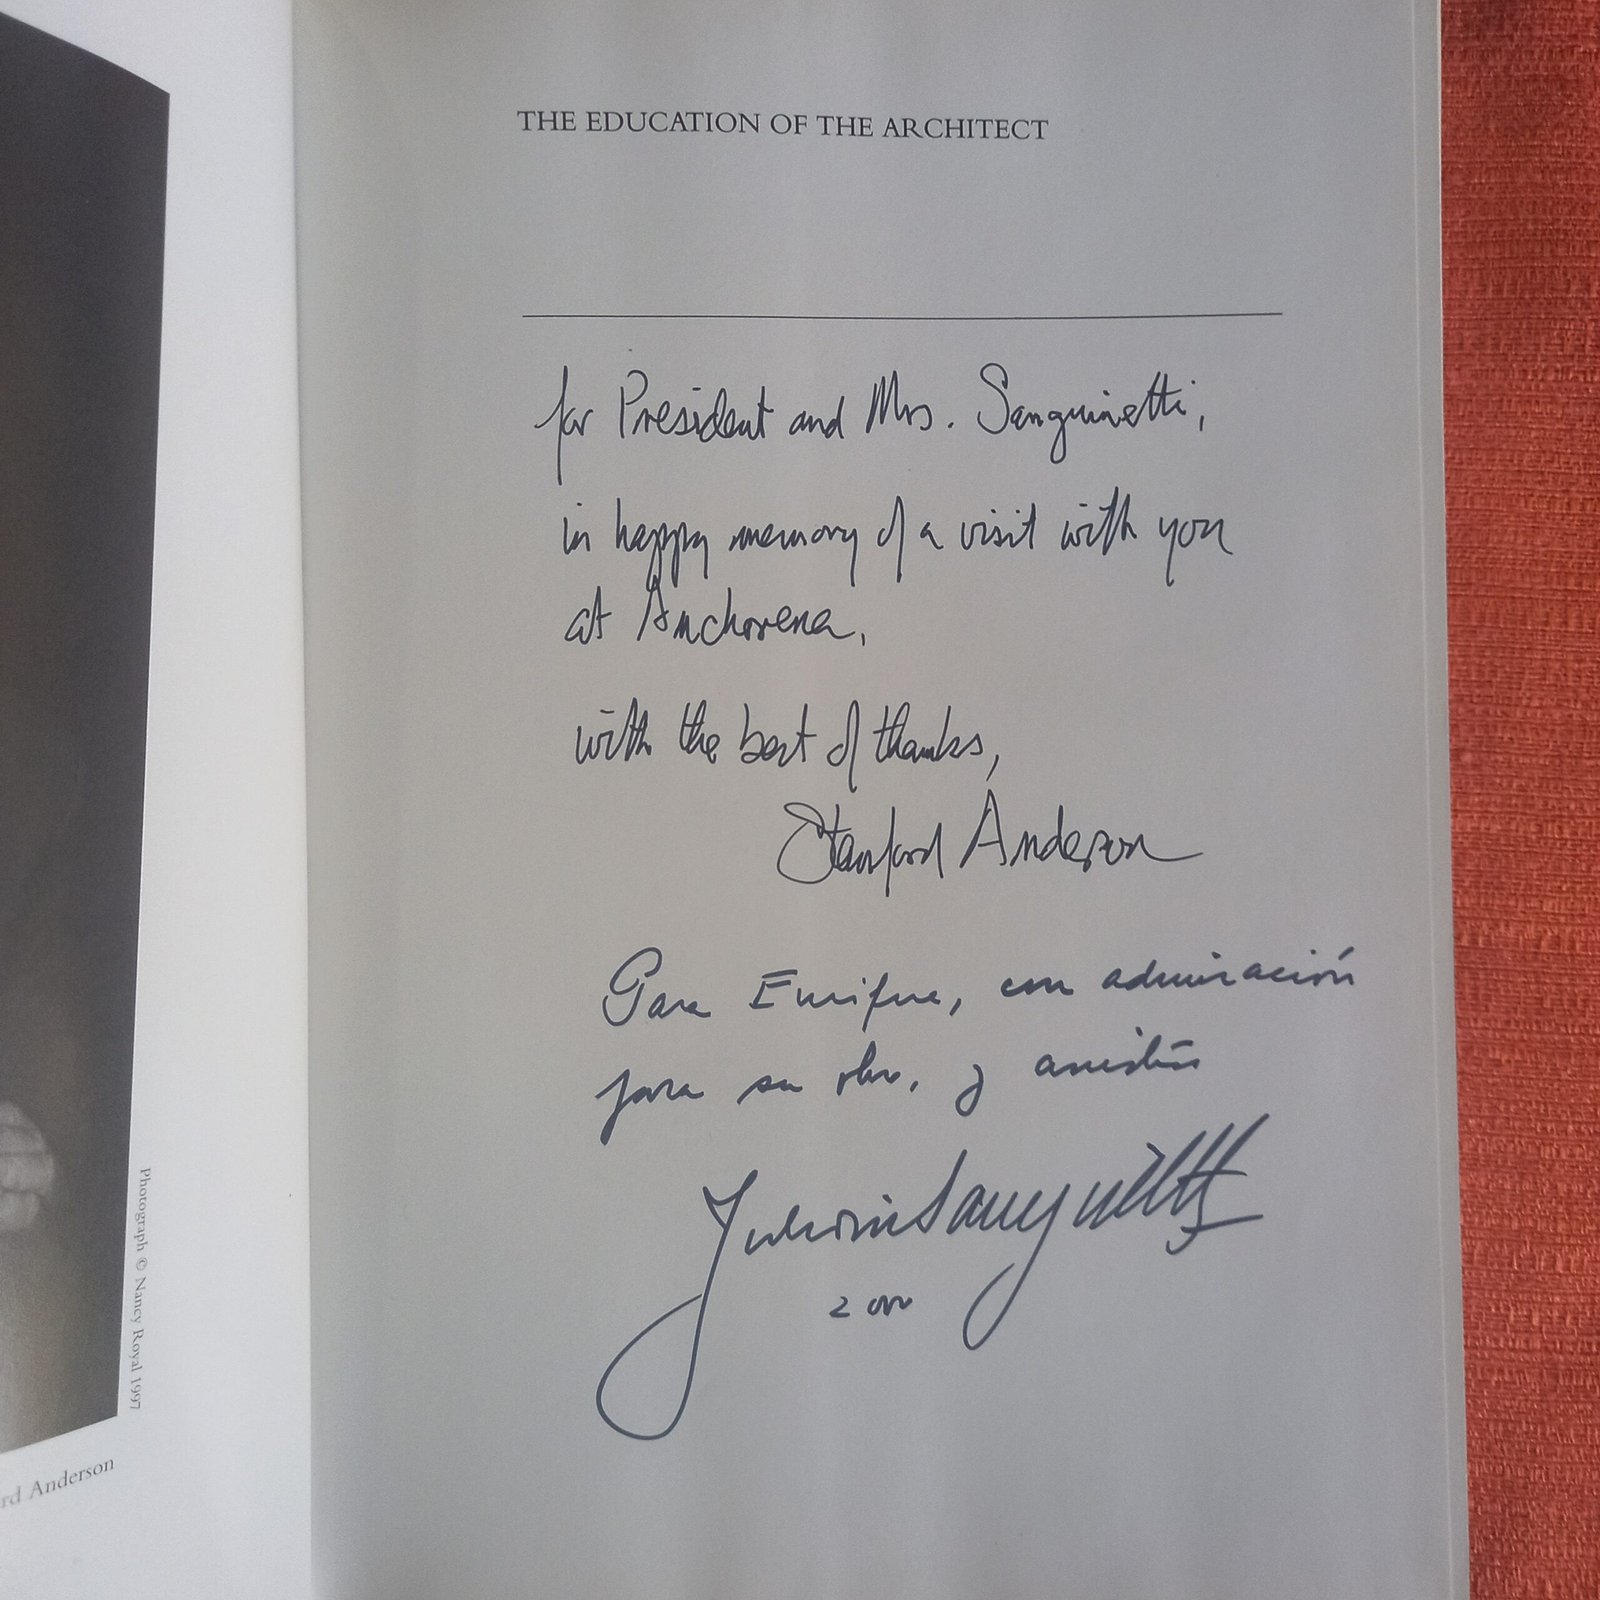 THE EDUCATION OF THE ARCHITECT
for President and Mrs. Sanguinetti,
in happy memory of a visit with you
at Anchorena,
with the best of thanks,
Stanford Anderson
Para Enrique, con admiración
para su obra, y amistad
Julio María Sanguinetti
2000
Photograph © Nancy Royal 1997
rd Anderson